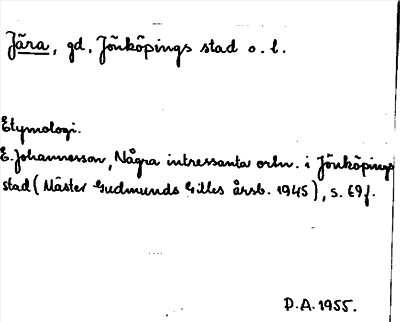 Jära, gd, Jönköpings stad o. l.
Etymologi.
E. Johannesson, Några intressanta ortn. i Jönköpings
stad (Mäster Gudmunds Gilles årsb. 1945), s. 69f.
D.A. 1955.